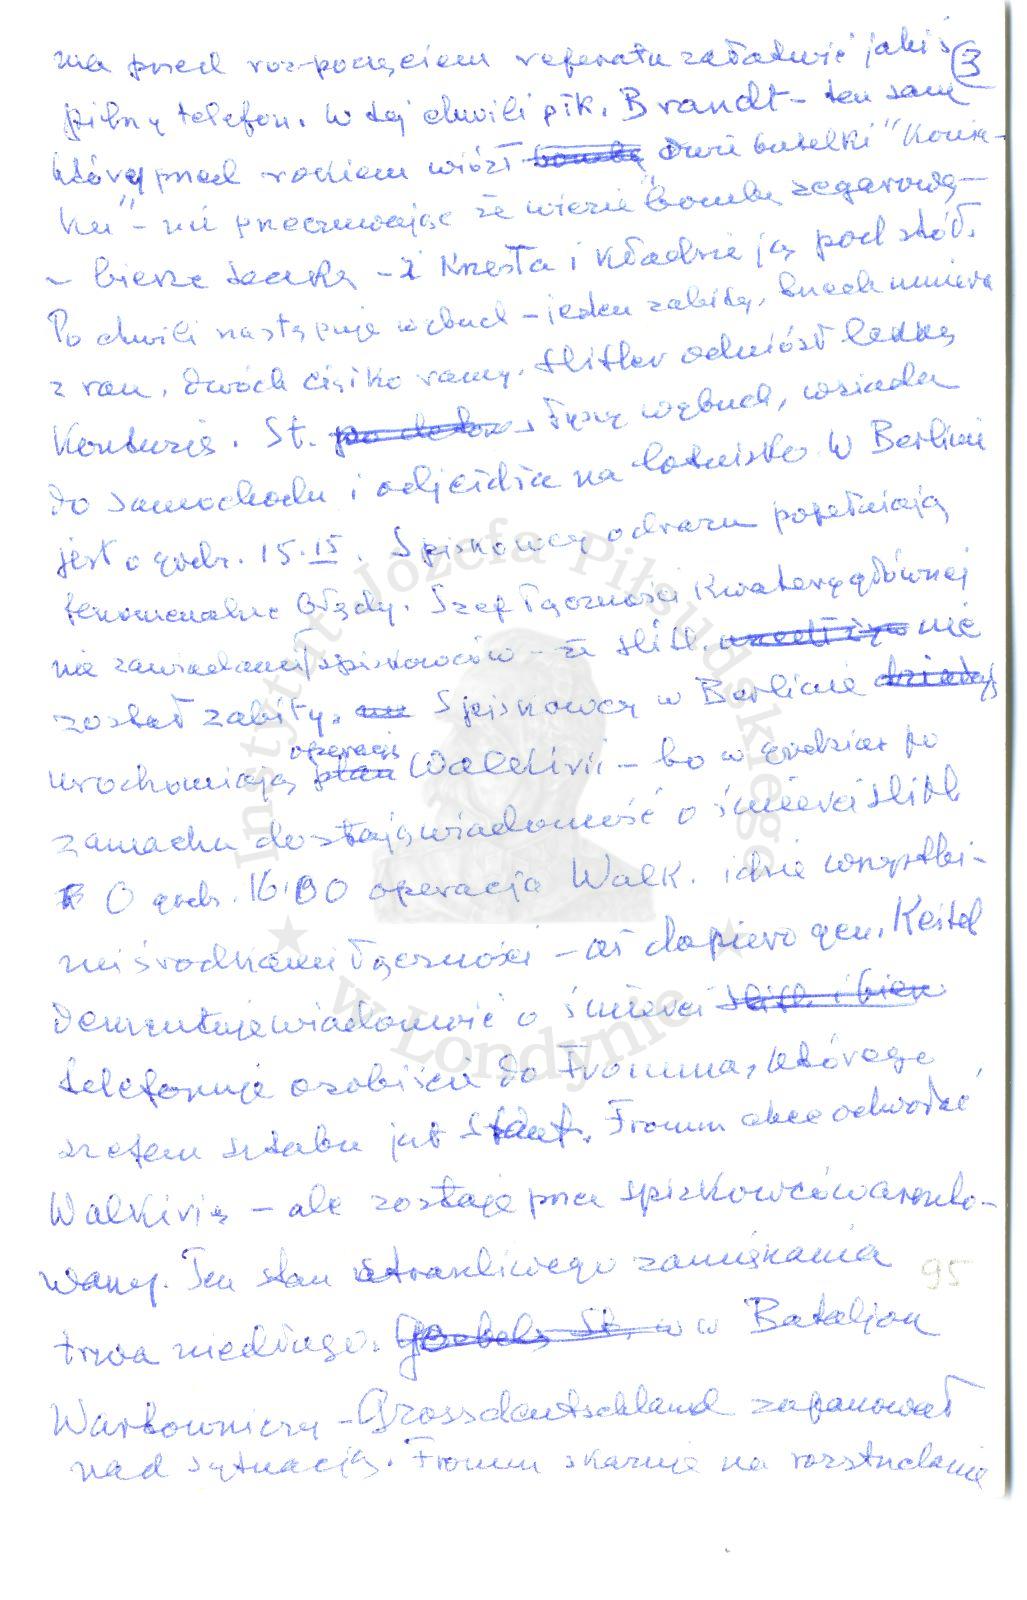 ma przed rozpoczęciem referatu załatwić jakiś 3
pilny telefon. W tej chwili płk. Brandt – ten sam
który przed rokiem wiózł bombę dwie butelki "Konia-
ku" – nie przeczuwając że wiezie bombę zegarową –
– bierze teczkę – z krzesła i kładzie ją pod stół.
Po chwili następuje wybuch – jeden zabity, trzech umiera
z ran, dwóch ciężko ranny. Hitler odniósł lekką
Konturzię. St. słyszy wybuch, wsiada
do samochodu i odjeżdża na lotnisko. W Berlinie
jest o godz. 15.15. Spiskowcy odrazu popełniają
fenomenalne błędy. Szef łączności Kwatery głównej
nie zawiadamia spiskowców – że Hitl. nie
został zabity. Spiskowcy w Berlinie
uruchomiają operację plan Walkirii – bo w godzinę po
zamachu dostają wiadomość o śmierci Hitl.
O godz. 16.00 operacja Walk. idzie wszystki-
mi środkami łączności – aż dopiero gen. Keitel
dementuje wiadomość o śmierci
telefonuje osobiście do Fromma, którego
szefem sztabu jest Stauf. Fromm chce odwołać
Walkirię – ale zostaje przez spiskowców areszto-
wany. Ten stan straszliwego zamieszania 95
trwa niedługo. Goebels St. w w Bataljon
Wartowniczy – Grossdeutschland zapanował
nad sytuacją. Fromm skazuje na rozstrzelanie
Instytut Józefa Piłsudskiego
w Londynie